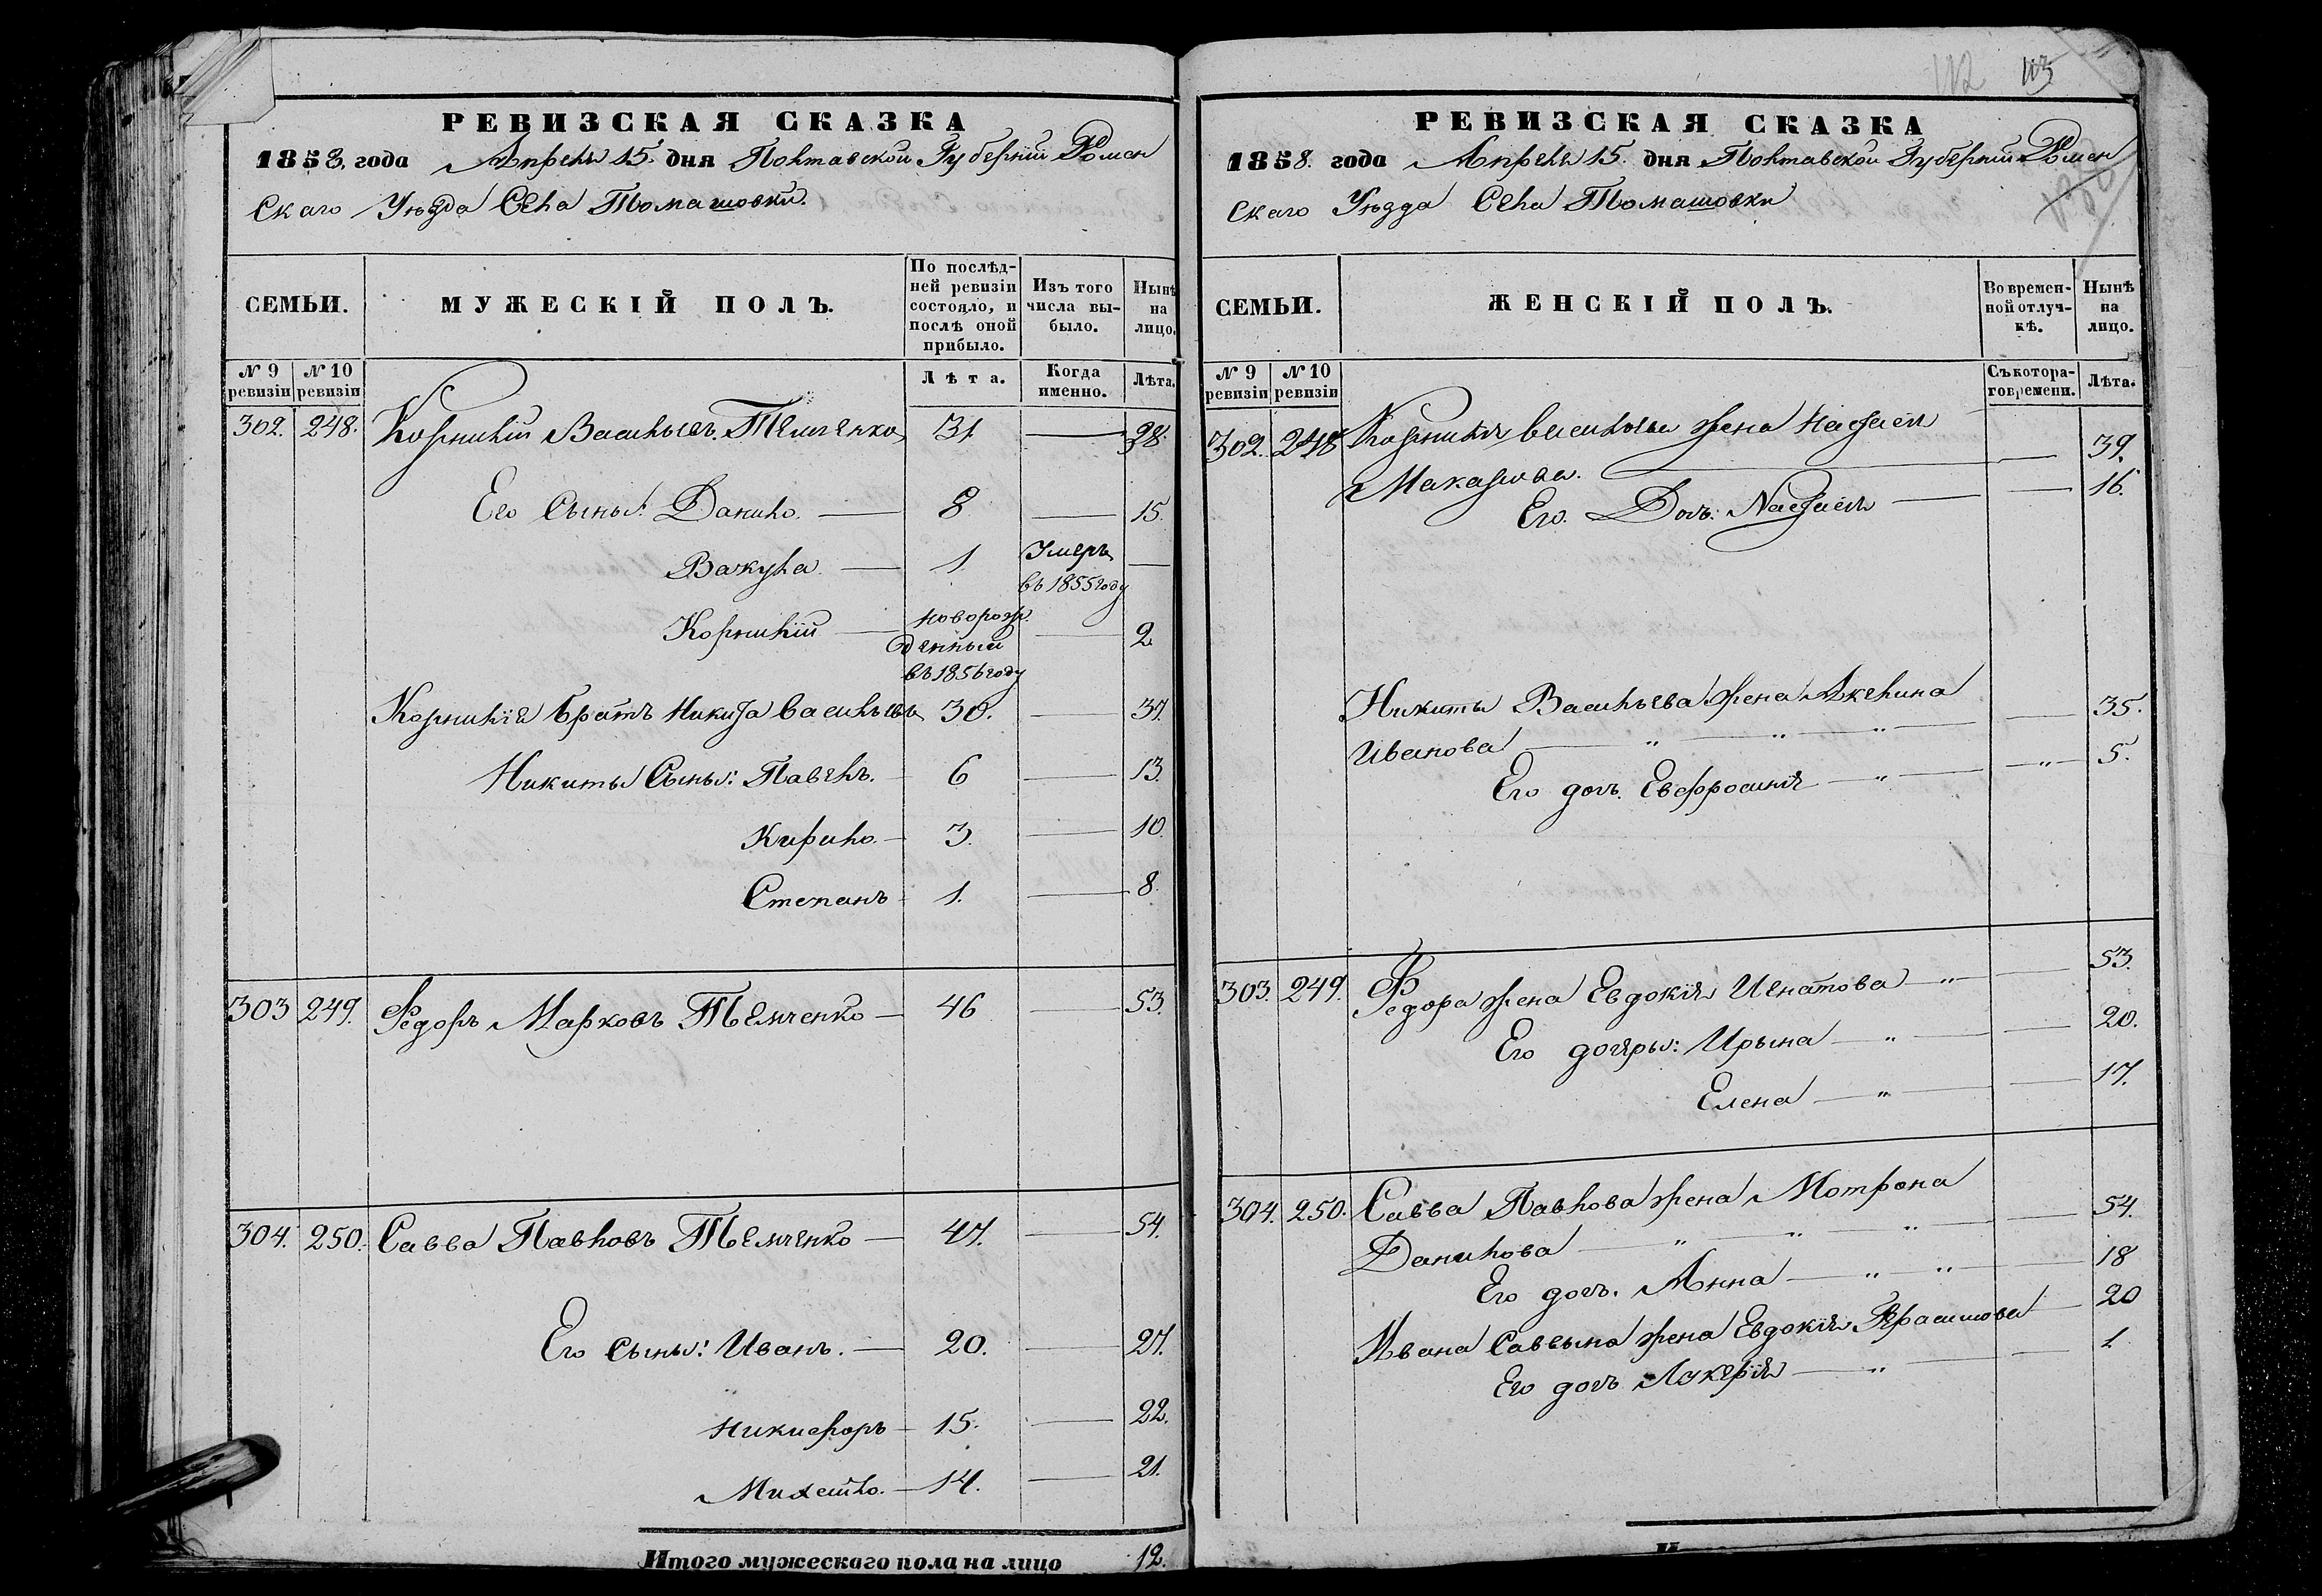 112 113
РЕВИЗСКАЯ СКАЗКА
1858. года Апреля 15. дня Полтавской Губерніи Ромен
скаго Уѣзда Села Томашовки.
СЕМЬИ.
МУЖЕСКІЙ ПОЛЪ.
По послѣд-
ней ревизіи
состояло, и
послѣ оной
прибыло.
Изъ того
числа вы-
было.
Нынѣ
на
лицо.
№ 9
ревизіи
№ 10
ревизіи
Лѣта.
Когда
именно.
Лѣта.
302. 248. Корнилій Васильевъ Темченко 31 38.
Его Сыны: Данило. 8 15.
Вакула 1. Умеръ
въ 1855 году
Корнилій новорож
денный 2
въ 1856 году
Корнилія братъ Никита Васильевъ 30. 37.
Никиты Сыны: Павелъ. 6 13.
Кирило. 3. 10.
Степанъ 1. 8.
303 249. Федоръ Марковъ Темченко 46 53.
304. 250. Савва Павловъ Темченко 47. 54.
Его сыны: Иванъ. 20. 27.
Никифоръ 15. 22.
Михайло. 14. 21.
Итого мужескаго пола на лицо 12.
РЕВИЗСКАЯ СКАЗКА
1858. года Апреля 15. дня Полтавской Губерніи Ромен
скаго Уѣзда Села Томашовки
СЕМЬИ.
ЖЕНСКІЙ ПОЛЪ.
Во времен-
ной отлуч-
кѣ.
Нынѣ
на
лицо.
№ 9
ревизіи
№ 10
ревизіи
Съ котора-
го времени.
Лѣта.
302. 248 Корнилія Васильева жена Настасія
Макарова. 39.
Его Дочь: Настасія 16.
Никиты Васильева жена Акелина
Иванова " " " 35.
Его дочь. Евфросинія " " 5.
303. 249. Федора жена Евдокія Игнатова " 53.
Его дочеры: Ирына " 20.
Елена " 17.
304. 250. Савва Павлова жена Мотрона
Данилова " " " 54.
Его дочь. Анна " " 18
Ивана Саввына жена Евдокія Герасимова 20
Его дочь Лукерія " 1